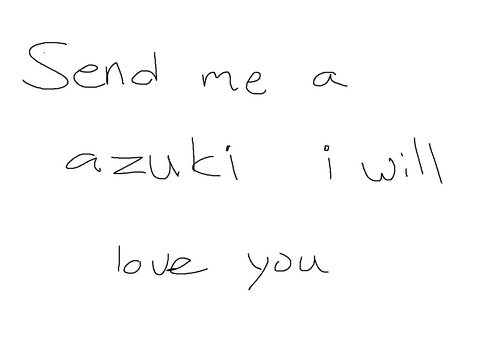 Send me a
azuki i will
love you